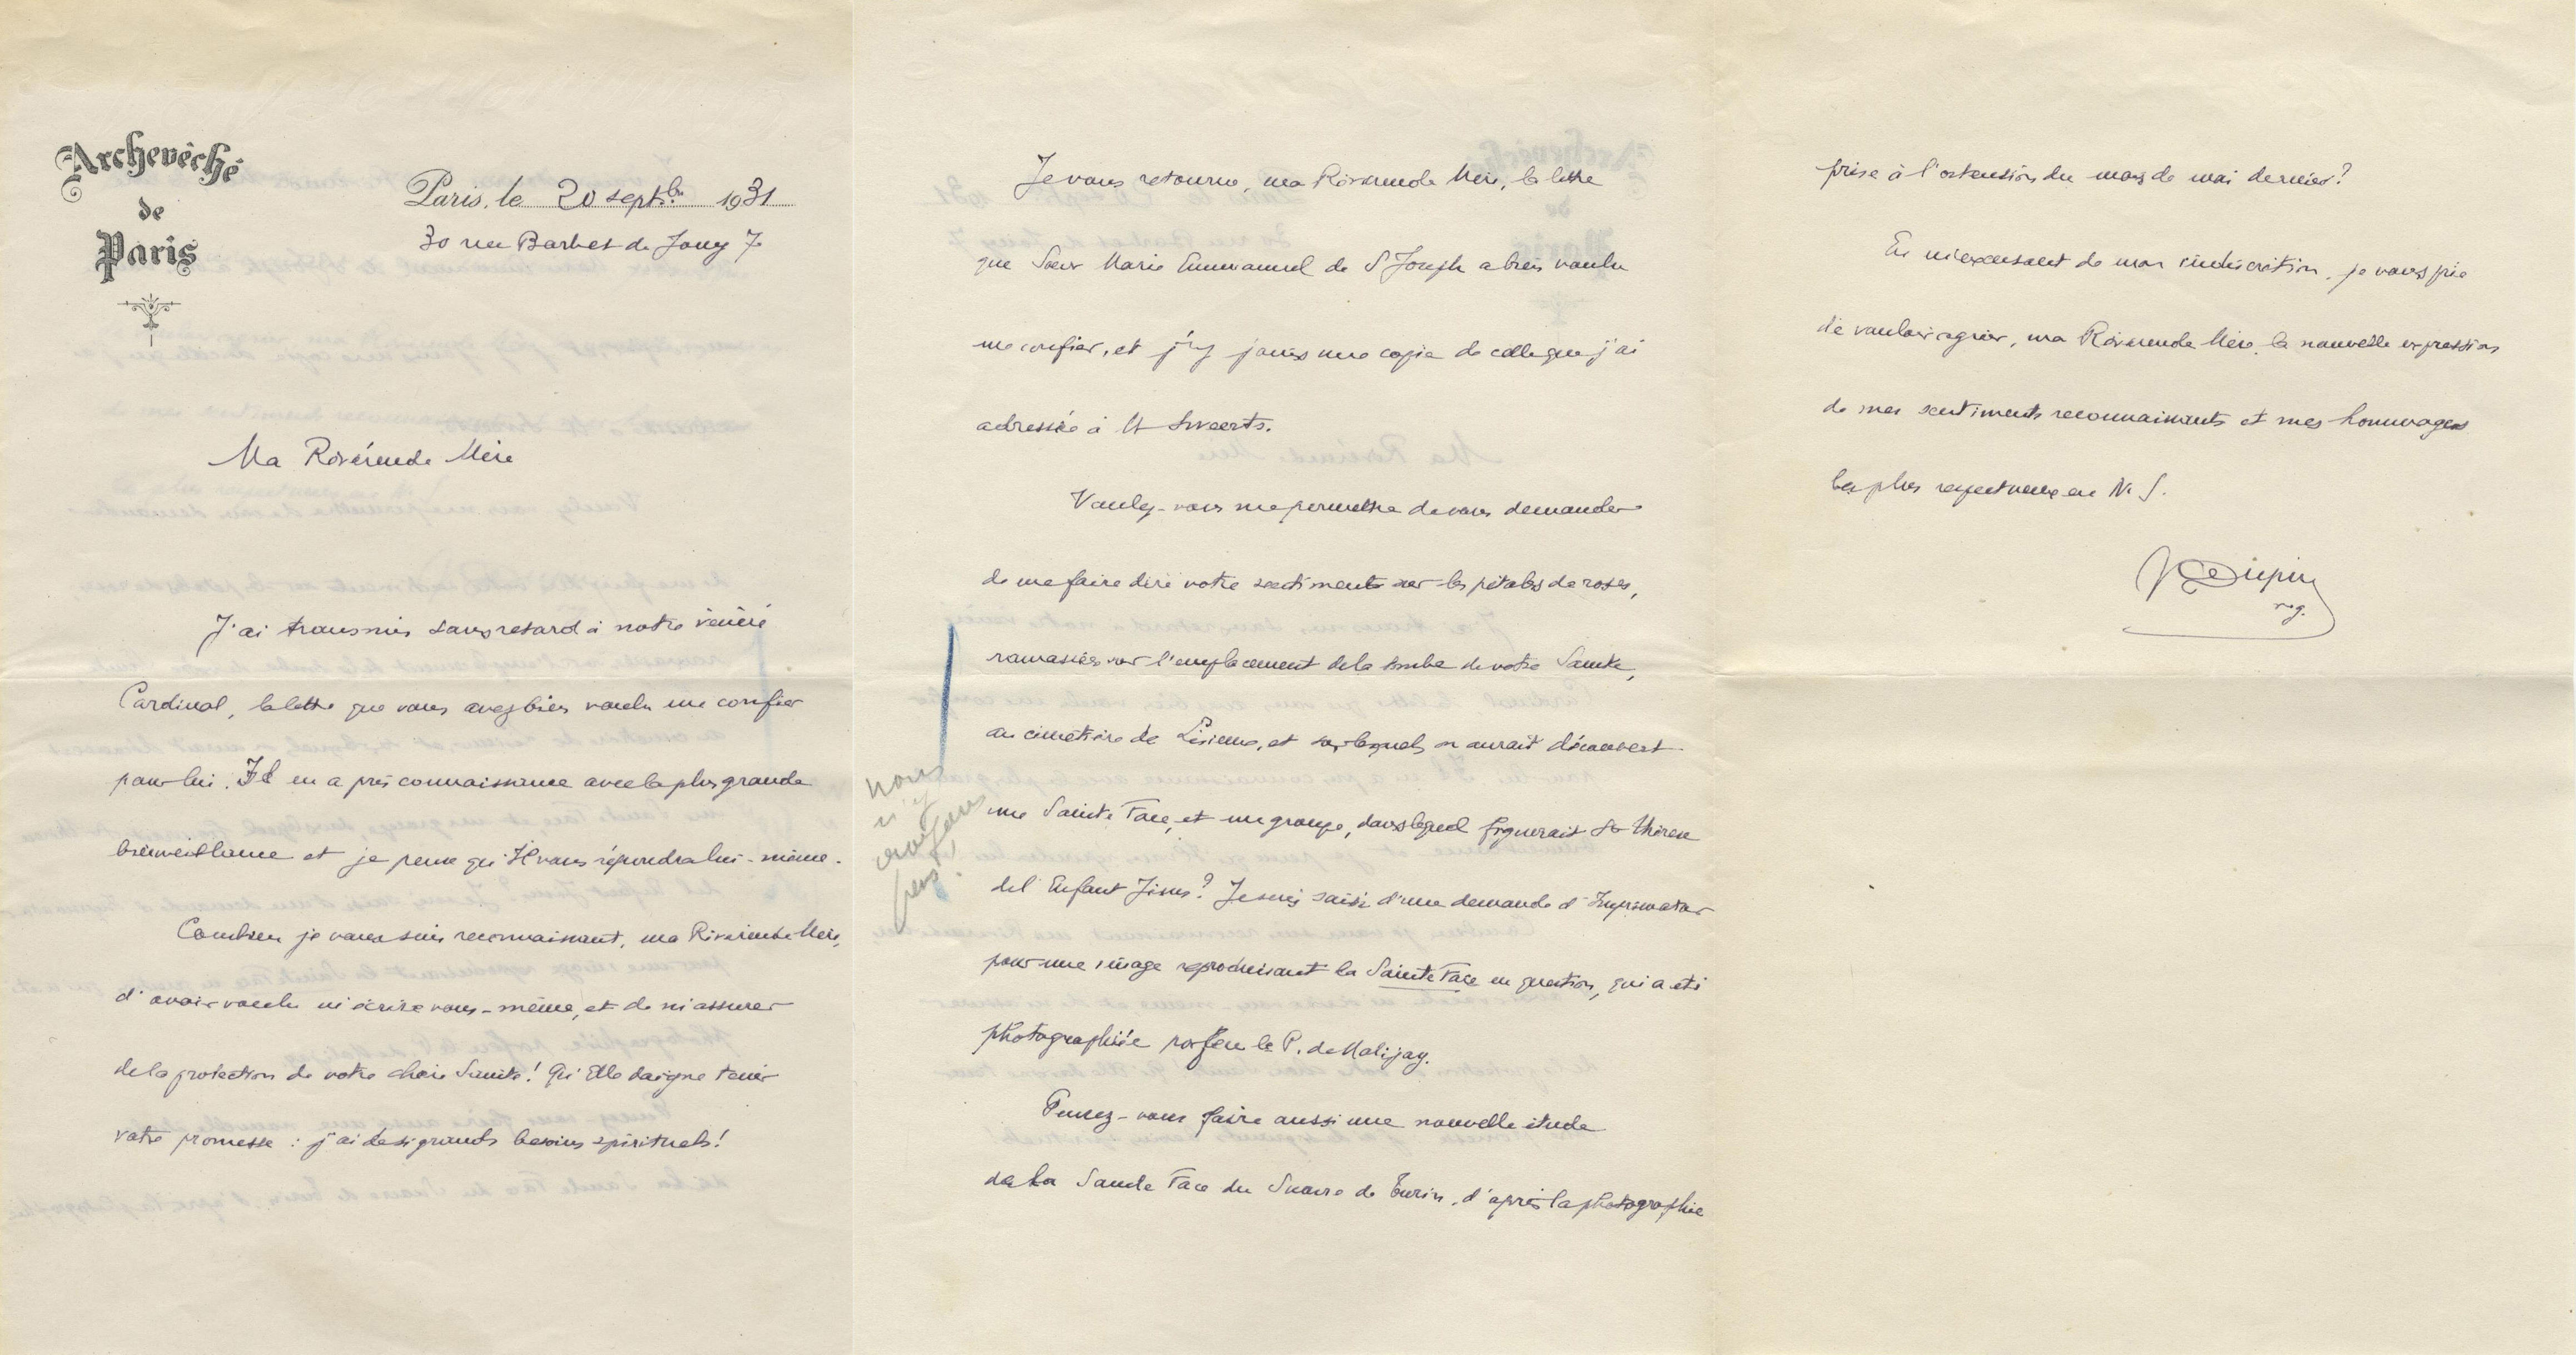 Archevêché
de
Paris
Paris, le 20 septbre 1931
30 rue Barbet de Jouy 7e
Ma Révérende Mère
J'ai transmis sans retard à notre vénéré
Cardinal, la lettre que vous avez bien voulu me confier
pour lui. Il en a pris connaissance avec la plus grande
bienveillance et je pense qu'Il vous répondra lui-même.
Combien je vous suis reconnaissant, ma Révérende Mère,
d'avoir voulu m'écrire vous-même, et de m'assurer
de la protection de votre chère Sainte! Qu'Elle daigne tenir
votre promesse : j'ai de si grands besoins spirituels!
Je vous retourne, ma Révérende Mère, la lettre
que Soeur Marie Emmanuel de St Joseph a bien voulu
me confier, et j'y joins une copie de celle que j'ai
adressée à Mr Sweerts.
Voulez-vous me permettre de vous demander
de me faire dire votre sentiment sur les pétales de roses,
ramassées sur l'emplacement de la tombe de votre Sainte,
au cimetière de Lisieux, et sur lesquels on aurait découvert
une Sainte Face, et un groupe, dans lequel figurerait Ste Thérèse
de l'Enfant Jésus? Je suis saisi d'une demande d'Imprimatur
pour une image reproduisant la Sainte Face en question, qui a été
photographiée par feu le P. de Malijay.
nous
n'y
croyons
pas.
Pensez-vous faire aussi une nouvelle étude
de la Sainte Face du Suaire de Turin, d'après la photographie
prise à l'ostension du mois de mai dernier?
En m'excusant de mon indiscrétion, je vous prie
de vouloir agréer, ma Révérende Mère, la nouvelle expression
de mes sentiments reconnaissants et mes hommages
les plus respectueux en N. S.
Dupin
v.g.